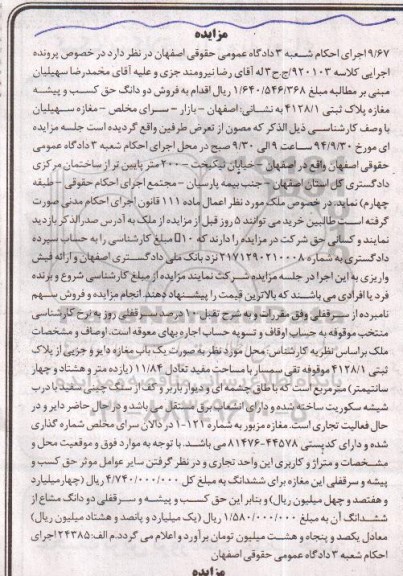 مزایده
۹/۶۷ اجرای احکام شعبه ۳ دادگاه عمومی حقوقی اصفهان در نظر دارد در خصوص پرونده
اجرایی کلاسه ۹۲۰۱۰۳/ج.ح۳ له آقای رضا نیرومند جزی و علیه آقای محمدرضا سهیلیان
مبنی بر مطالبه مبلغ ۱/۶۴۰/۵۴۶/۳۶۸ ریال اقدام به فروش دو دانگ حق کسب و پیشه
مغازه پلاک ثبتی ۴۱۲۸/۱ به نشانی: اصفهان - بازار - سرای مخلص - مغازه سهیلیان
با وصف کارشناسی ذیل الذکر که مصون از تعرض طرفین واقع گردیده است جلسه مزایده
ای مورخ ۹۴/۹/۳۰ ساعت ۹ الی ۹/۳۰ صبح در محل اجرای احکام شعبه ۳ دادگاه عمومی
حقوقی اصفهان واقع در اصفهان - خیابان نیکبخت - ۲۰۰ متر پایین تر از ساختمان مرکزی
دادگستری کل استان اصفهان - جنب بیمه پارسیان - مجتمع اجرای احکام حقوقی - طبقه
چهارم) نماید. در خصوص ملک مورد نظر اعمال ماده ۱۱۱ قانون اجرای احکام مدنی صورت
گرفته است طالبین خرید می توانند ۵ روز قبل از مزایده از ملک به آدرس صدرالذکر بازدید
نمایند و کسانی حق شرکت در مزایده را دارند که ۱۰ مبلغ کارشناسی را به حساب سپرده
دادگستری به شماره ۲۱۷۱۲۹۰۲۱۰۰۰۸ نزد بانک ملی دادگستری اصفهان و ارائه فیش
واریزی به این اجرا در جلسه مزایده شرکت نمایند مزایده از مبلغ کارشناسی شروع و برنده
فرد یا افرادی می باشند که بالاترین قیمت را پیشنهاد دهند. انجام مزایده و فروش سهم
نامبرده از سرقفلی وفق مقررات و به شرح تقبل ۱۰ درصد سرقفلی روز به نرخ کارشناسی
منتخب موقوفه به حساب اوقاف و تسویه حساب اجاره بهای معوقه است. اوصاف و مشخصات
ملک براساس نظریه کارشناس: محل مورد نظر به صورت یک باب مغازه دایر و جزیی از پلاک
ثبتی ۴۱۲۸/۱ موقوفه تقی سمسار با مساحت مفید تعادل ۱۱/۸۴ (یازده متر و هشتاد و چهار
سانتیمتر) مترمربع است که با طاق چشمه ای و دیوار باربر و کف از سنگ چینی سفید با درب
شیشه سکوریت ساخته شده و دارای انشعاب برق مستقل می باشد و در حال حاضر دایر و در
حال فعالیت تجاری است. مغازه مزبور به شماره ۱۲۱-۱ در دالان سرای مخلص شماره گذاری
شده و دارای کدپستی ۴۴۵۷۸-۸۱۴۷۶ می باشد. با توجه به موارد فوق و موقعیت محل و
مشخصات و متراژ و کاربری این واحد تجاری و در نظر گرفتن سایر عوامل موثر حق کسب و
پیشه و سرقفلی این مغازه برای ششدانگ به مبلغ کل ۴/۷۴۰/۰۰۰/۰۰۰ ریال (چهارمیلیارد
و هفتصد و چهل میلیون ریال) و بنابر این حق کسب و پیشه و سرقفلی دو دانگ مشاع از
ششدانگ آن به مبلغ ۱/۵۸۰/۰۰۰/۰۰۰ ریال (یک میلیارد و پانصد و هشتاد میلیون ریال)
معادل یکصد و پنجاه و هشت میلیون تومان برآورد و اعلام می گردد.م الف:۲۴۳۸۵ اجرای
احکام شعبه ۳ دادگاه عمومی حقوقی اصفهان
مزایده